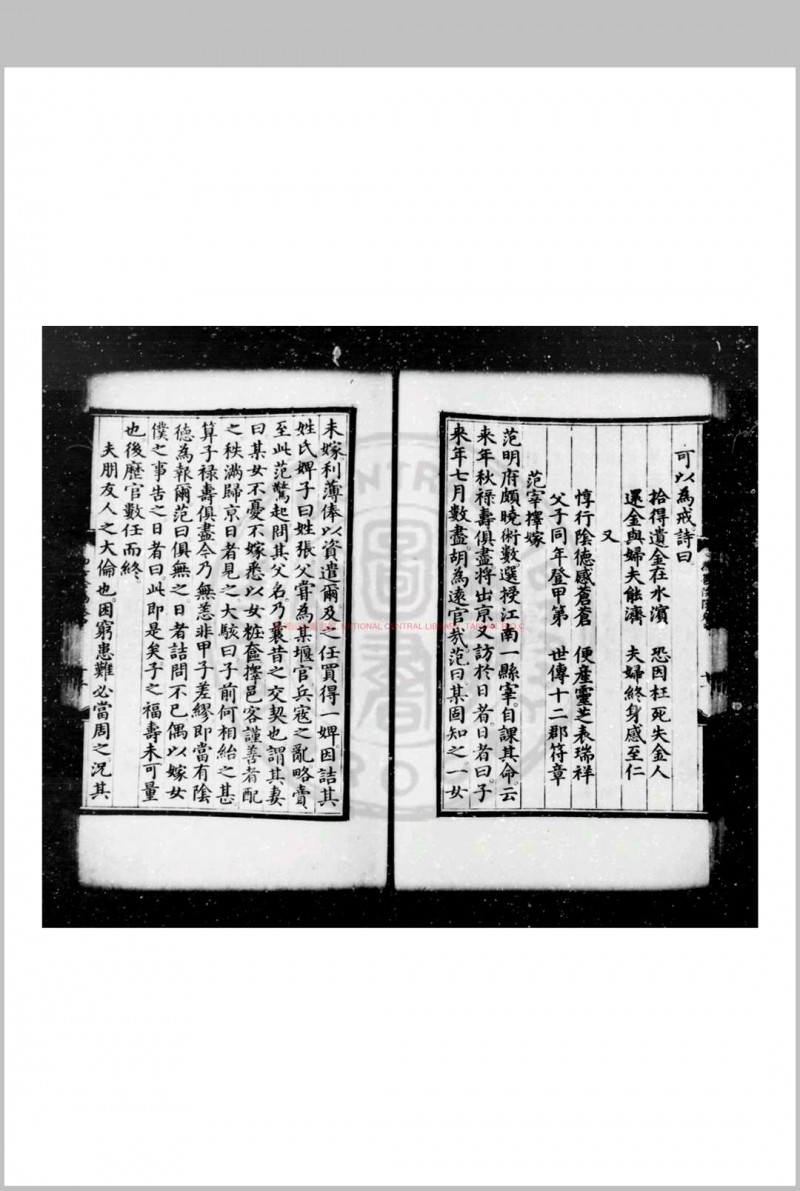 可以為戒詩曰
拾得遺金在水濱　恐因枉死失金人
還金與婦夫能濟　夫婦終身感至仁
又
惇行陰德感蒼蒼　便產靈芝表瑞祥
父子同年登甲第　世傳十二郡符章
范宰擇嫁
范明府頗曉術數選授江南一縣宰自課其命云
來年秋祿壽俱盡將出京又訪於日者日者曰子
來年七月數盡胡為遠官哉范曰某固知之一女
未嫁利薄俸以資遣爾及之任買得一婢因詰其
姓氏婢子曰姓張父嘗為某堰官兵寇之亂略賣
至此范驚起問其父名乃曩昔之交契也謂其妻
曰某女不憂不嫁悉以女粧奩擇邑客謹善者配
之秩滿歸京日者見之大駭曰子前何相紿之甚
算子祿壽俱盡今乃無恙非甲子差繆即當有陰
德為報爾范曰俱無之日者詰問不已偶以嫁女
僕之事告之日者曰此即是矣子之福壽未可量
也後歷官數任而終
夫朋友人之大倫也因窮患難必當周之況其
NATIONAL CENTRAL LIBRARY, TAIWAN, R.O.C.